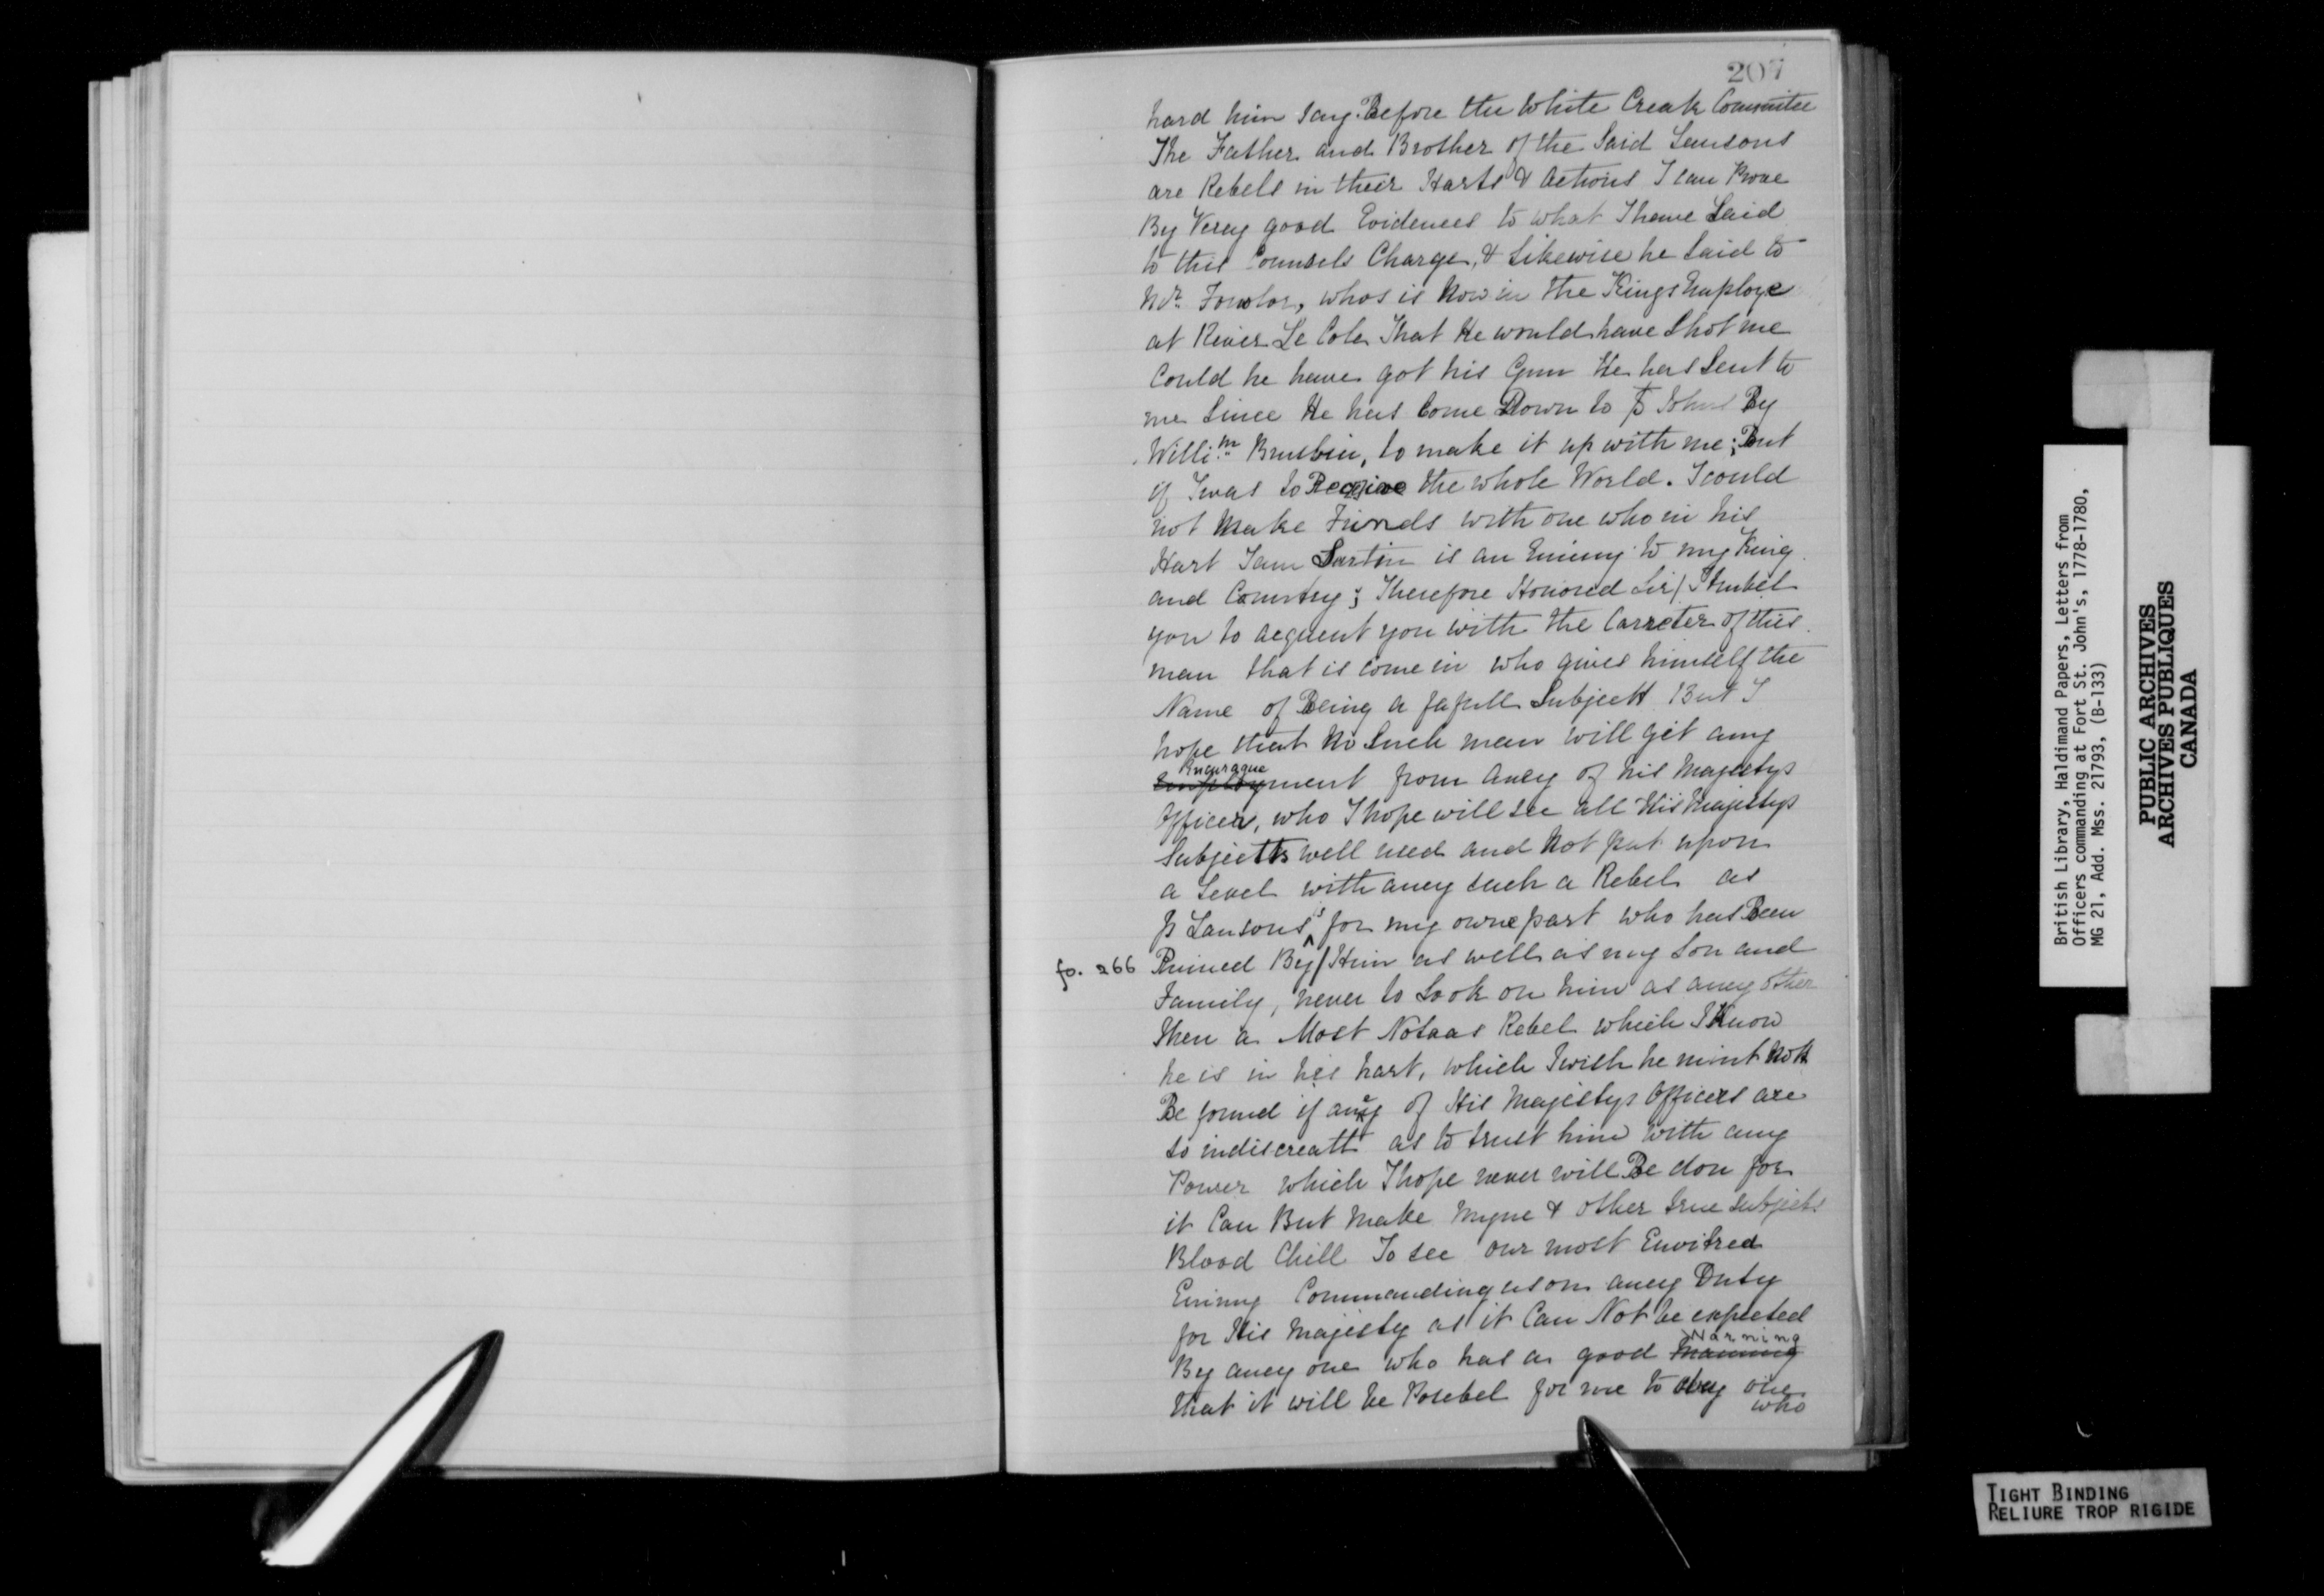 207
hard him say. Before the White Creak Committee
The Father and Brother of the Said Lansons
are Rebels in their Harts & Actions I can Prove
By Verey good Evidences to what I have Said
to this Counsels Charge, & Likewise he Said to
Mr. Fowlor, whos is Now in the Kings Employe
at River Le Cole That He would have Shot me
Could he have got his Gun He has Sent to
me Since He has Come Down to St Johns By
Willim Brusbin, to make it up with me; But
if I was to Receive the whole World. I could
not Make Frinds with one who in his
Hart I am Sartin is an Enimy to my King
and Country; Therefore Honored Sir/
you to acquent you with the Carrcter of this
man that is come in who gives himself the
Name of Being a faful Subjectt But I
hope that no Such man will git any
Encurague
Employment from aney of his Majestys
Officers, who I hope will see all His Majestys
Subjectts well used and Not put upon
a Level with aney such a Rebel as
Ja Lansons is for my owne part who has Been
fo. 266 Ruined By/ Him as well as my Son and
Family, never to Look on him as aney other
then a Most Notaas Rebel which I Know
he is in his hart, which I wish he mint Nott
Be found if aney of His Majestys Officers are
so indiscreatt as to trust him with any
Power which I hope never will Be don for
it Can But Make Myne & other true subjects
Blood Chill To see our most
Enimy Commanding us on aney Duty
for His Majesty as it Can Not be expected
Narning
By aney one who has a good Manning
that it will be Posebel for me to obey one
who
British Library, Haldimand Papers, Letters from
Officers commanding at Fort St. John's, 1778-1780,
MG 21, Add. Mss. 21793, (B-133)
PUBLIC ARCHIVES
ARCHIVES PUBLIQUES
CANADA
TIGHT BINDING
RELIURE TROP RIGIDE